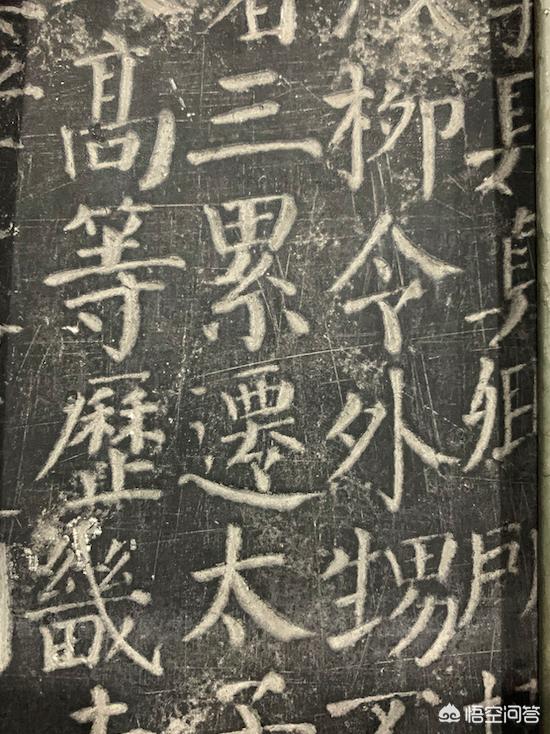 柳令外甥不
三累遷太子
高等歷畿
悟空问答